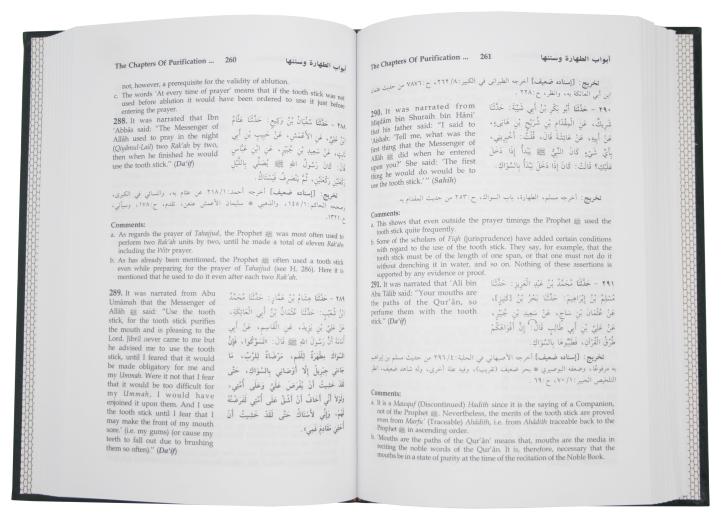 The Chapters Of Purification ... 260 أبواب الطهارة وسننها
not, however, a prerequisite for the validity of ablution.
c. The words 'At every time of prayer' means that if the tooth stick was not
used before ablution it would have been ordered to use it just before
entering the prayer.
288. It was narrated that Ibn
'Abbâs said: "The Messenger of
Allâh ﷺ used to pray in the night
(Qiyâmul-Lail) two Rak'ah by two,
then when he finished he would
use the tooth stick." (Da'if)
٢٨٨- حَدَّثَنَا سُفْيَانُ بْنُ وَكِيعٍ: حَدَّثَنَا عَثَّامُ
ابْنُ عَلِيٍّ، عَنِ الأَعْمَشِ، عَنْ حَبِيبِ بْنِ أَبِي
ثَابِتٍ، عَنْ سَعِيدِ بْنِ جُبَيْرٍ، عَنِ ابْنِ عَبَّاسٍ
قَالَ: كَانَ رَسُولُ اللهِ ﷺ يُصَلِّي بِاللَّيْلِ
رَكْعَتَيْنِ رَكْعَتَيْنِ، ثُمَّ يَنْصَرِفُ فَيَسْتَاكُ.
تخريج: [إسناده ضعيف] أخرجه أحمد: ٢١٨/١ عن عثام به، والنسائي في الكبرى،
Comments:
a. As regards the prayer of Tahajjud, the Prophet ﷺ was most often used to
perform two Rak'ah units by two, until he made a total of eleven Rak'ahs
including the Witr prayer.
b. As has already been mentioned, the Prophet ﷺ often used a tooth stick
even while preparing for the prayer of Tahajjud (see H. 286). Here it is
mentioned that he used to do it even after each two Rak'ah.
289. It was narrated from Abu
Umâmah that the Messenger of
Allâh ﷺ said: "Use the tooth
stick, for the tooth stick purifies
the mouth and is pleasing to the
Lord. Jibril never came to me but
he advised me to use the tooth
stick, until I feared that it would
be made obligatory for me and
my Ummah. Were it not that I fear
that it would be too difficult for
my Ummah, I would have
enjoined it upon them. And I use
the tooth stick until I fear that I
may make the front of my mouth
sore.' (i.e. my gums) (or cause my
teeth to fall out due to brushing
them so often)." (Da'if)
٢٨٩- حَدَّثَنَا هِشَامُ بْنُ عَمَّارٍ: حَدَّثَنَا مُحَمَّدُ
ابْنُ شُعَيْبٍ: حَدَّثَنَا عُثْمَانُ بْنُ أَبِي الْعَاتِكَةِ،
عَنْ عَلِيِّ بْنِ يَزِيدَ، عَنِ الْقَاسِمِ، عَنْ أَبِي
أُمَامَةَ أَنَّ رَسُولَ اللهِ ﷺ قَالَ: «تَسَوَّكُوا، فَإِنَّ
السِّوَاكَ مَطْهَرَةٌ لِلْفَمِ، مَرْضَاةٌ لِلرَّبِّ. مَا
جَاءَنِي جِبْرِيلُ إِلَّا أَوْصَانِي بِالسِّوَاكِ، حَتَّى
لَقَدْ خَشِيتُ أَنْ يُفْرَضَ عَلَيَّ وَعَلَى أُمَّتِي،
وَلَوْلَا أَنِّي أَخَافُ أَنْ أَشُقَّ عَلَى أُمَّتِي لَفَرَضْتُهُ
لَهُمْ. وَإِنِّي لَأَسْتَاكُ حَتَّى لَقَدْ خَشِيتُ أَنْ
أُحْفِيَ مَقَادِمَ فَمِي».
The Chapters Of Purification ... 261 أبواب الطهارة وسننها
تخريج: [إسناده ضعيف] أخرجه الطبراني في الكبير: ٢٦٢/٨، ح: ٧٨٧٦ من حديث عثمان
ابن أبي العاتكة به، وانظر، ح: ٢٢٨.
290. It was narrated from
Miqdâm bin Shuraih bin Hâni'
that his father said: "I said to
'Aishah: 'Tell me, what was the
first thing that the Messenger of
Allâh ﷺ did when he entered
upon you?' She said: 'The first
thing he would do would be to
use the tooth stick.'" (Sahih)
٢٩٠- حَدَّثَنَا أَبُو بَكْرِ بْنُ أَبِي شَيْبَةَ: حَدَّثَنَا
شَرِيكٌ، عَنِ الْمِقْدَامِ بْنِ شُرَيْحِ بْنِ هَانِئٍ،
عَنْ أَبِيهِ، عَنْ عَائِشَةَ قَالَ: قُلْتُ: أَخْبِرِينِي،
بِأَيِّ شَيْءٍ كَانَ النَّبِيُّ ﷺ يَبْدَأُ إِذَا دَخَلَ
عَلَيْكِ؟ قَالَتْ: كَانَ إِذَا دَخَلَ يَبْدَأُ بِالسِّوَاكِ.
تخريج: أخرجه مسلم، الطهارة، باب السواك، ح: ٢٥٣ من حديث المقدام به.
Comments:
a. This shows that even outside the prayer timings the Prophet ﷺ used the
tooth stick quite frequently.
b. Some of the scholars of Fiqh (jurisprudence) have added certain conditions
with regard to the use of the tooth stick. They say, for example, that the
tooth stick must be of the length of one span, or that one must not do it
without drenching it in water, and so on. Nothing of these assertions is
supported by any evidence or proof.
291. It was narrated that 'Ali bin
Abu Tâlib said: "Your mouths are
the paths of the Qur'ân, so
perfume them with the tooth
stick." (Da'if)
٢٩١- حَدَّثَنَا مُحَمَّدُ بْنُ عَبْدِ الْعَزِيزِ: حَدَّثَنَا
مُسْلِمُ بْنُ إِبْرَاهِيمَ: حَدَّثَنَا بَحْرُ بْنُ كَنِيزٍ،
عَنْ عُثْمَانَ بْنِ سَاجٍ، عَنْ سَعِيدِ بْنِ جُبَيْرٍ،
عَنْ عَلِيِّ بْنِ أَبِي طَالِبٍ قَالَ: إِنَّ أَفْوَاهَكُمْ
طُرُقٌ لِلْقُرْآنِ، فَطَيِّبُوهَا بِالسِّوَاكِ.
تخريج: [إسناده ضعيف] أخرجه الأصبهاني في الحلية: ٢٩٦/٤ من حديث مسلم بن إبراهيم
Comments:
a. It is a Mauquf (Discontinued) Hadith since it is the saying of a Companion,
not of the Prophet ﷺ. Nevertheless, the merits of the tooth stick are proved
even from Marfu' (Traceable) Ahâdith, i.e. from Ahâdith traceable back to the
Prophet ﷺ in ascending order.
b. 'Mouths are the paths of the Qur'ân' means that, mouths are the media in
reciting the noble words of the Qur'ân. It is, therefore, necessary that the
mouths be in a state of purity at the time of the recitation of the Noble Book.